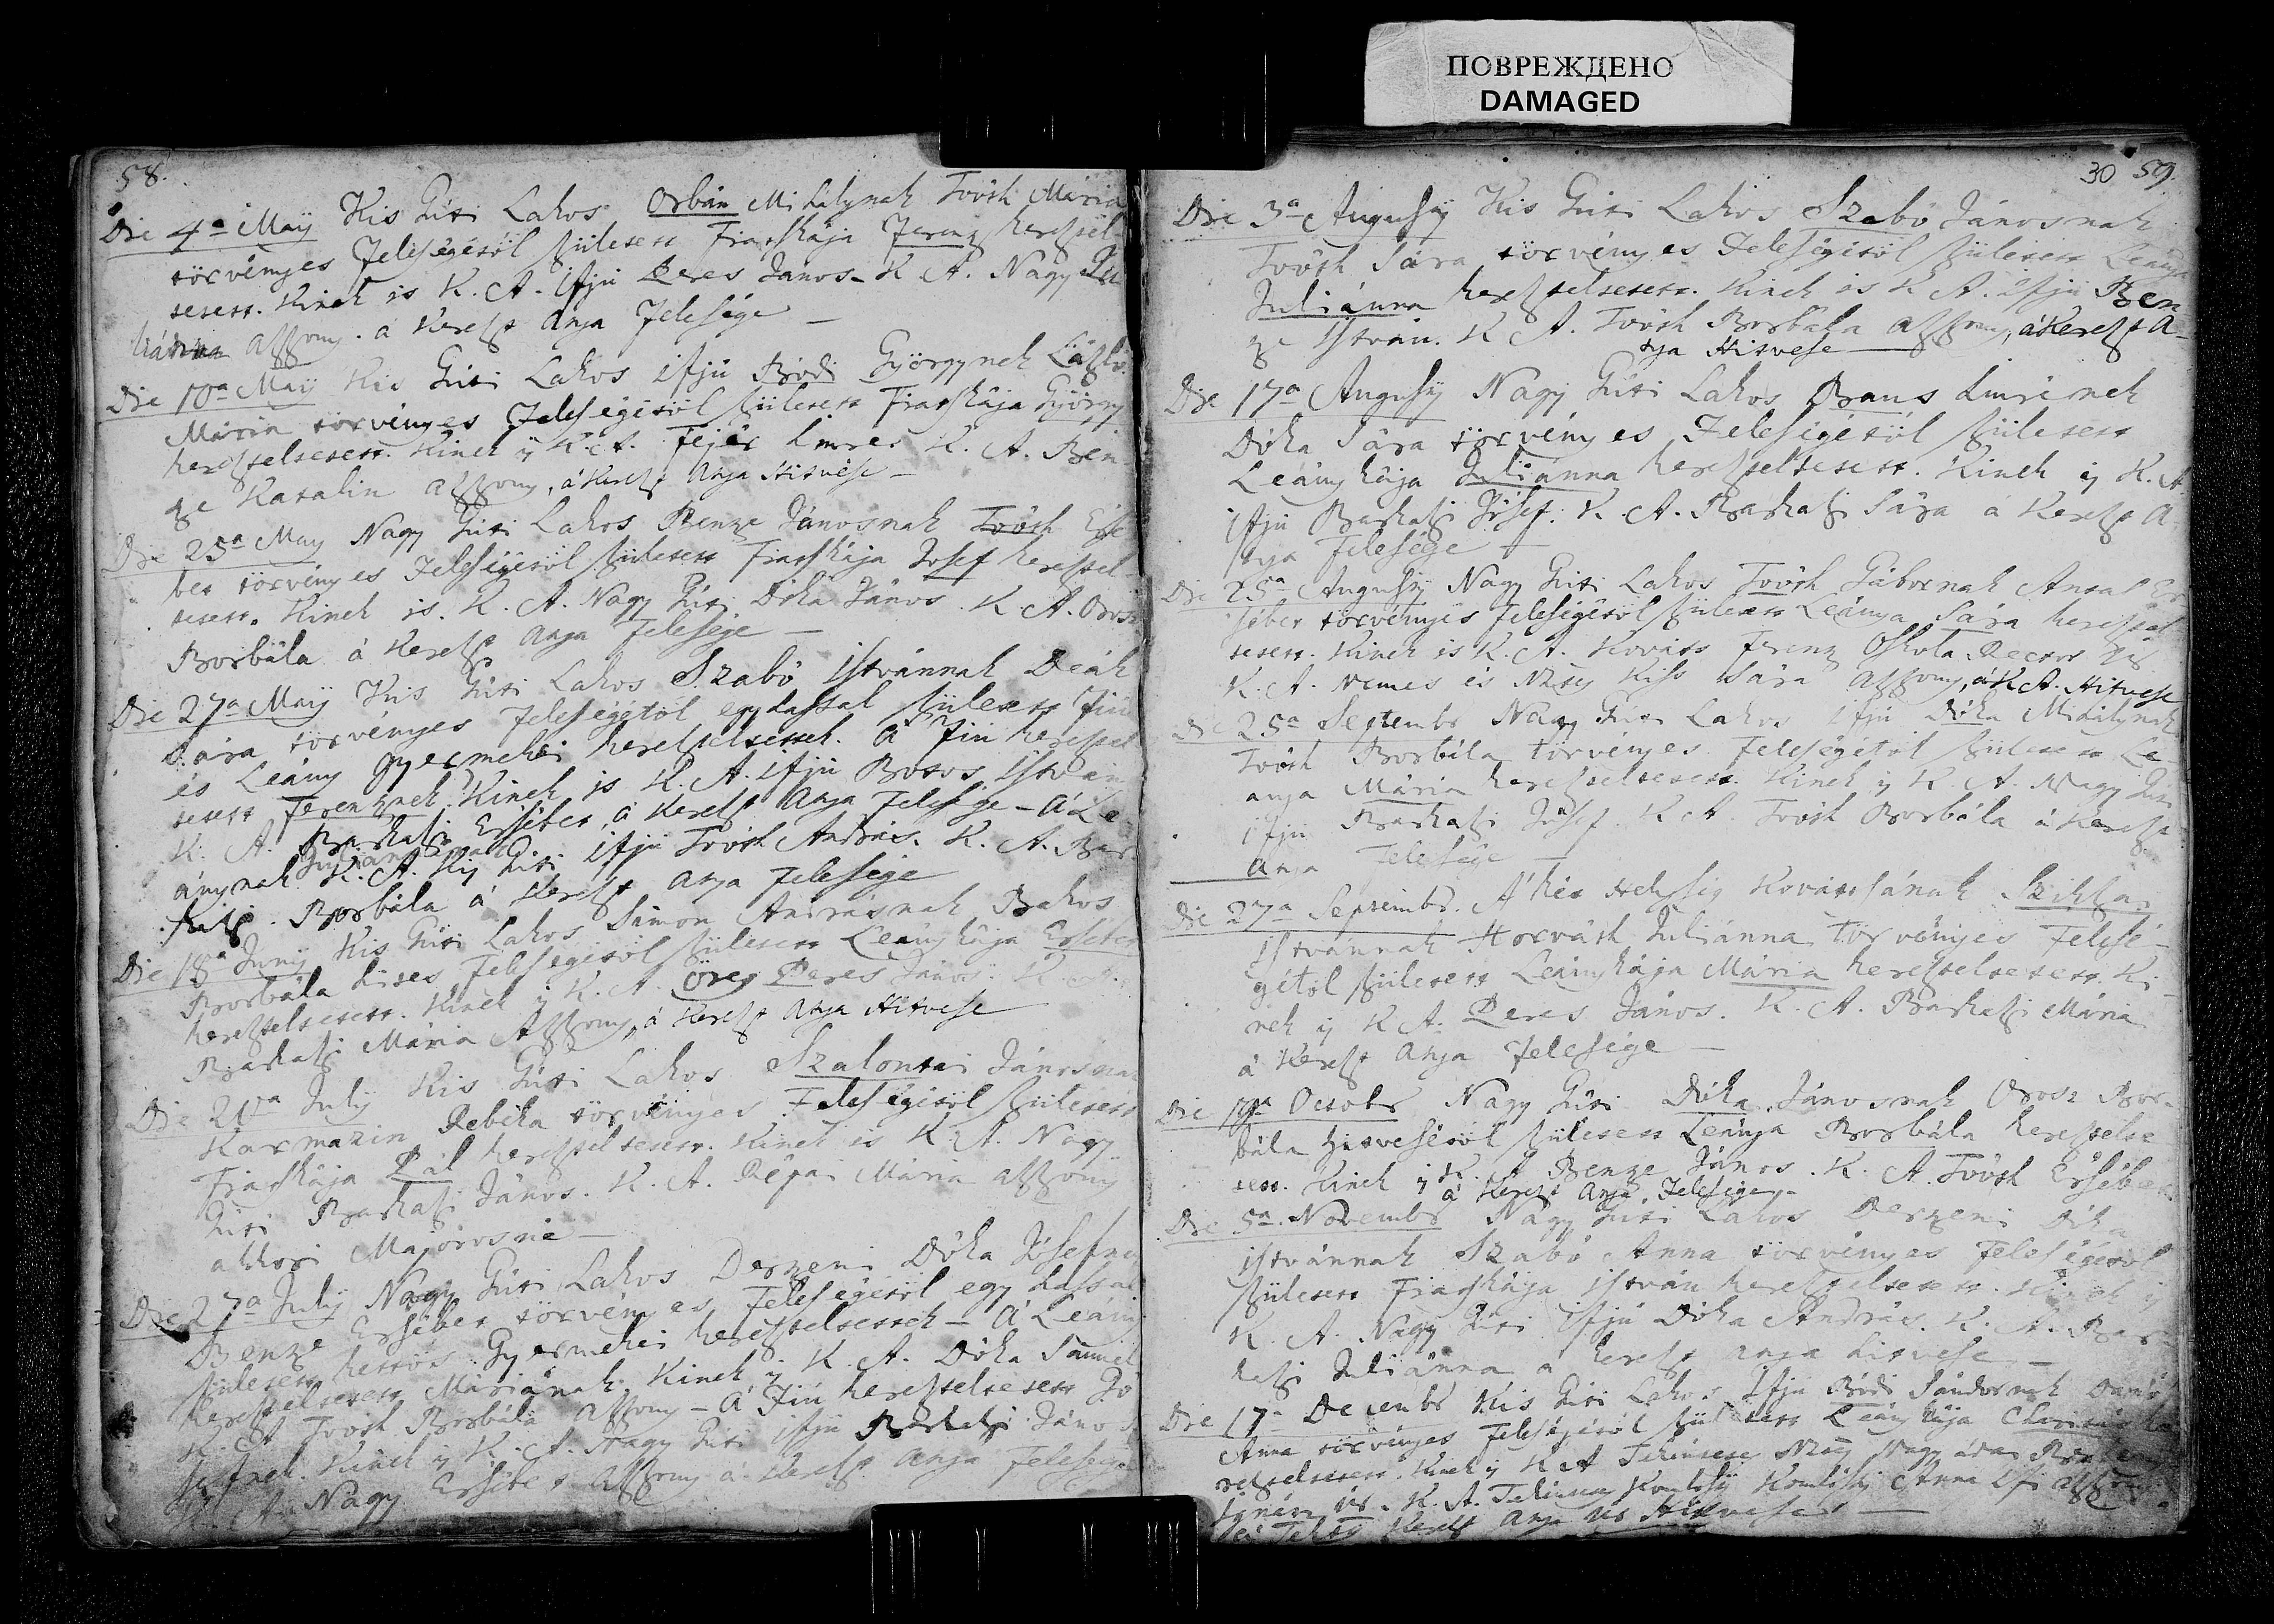 ПОВРЕЖДЕНО
DAMAGED
58.
Die 4a Maÿ Kis Guti Lakos Orbán Mihálynak Tóóth Mária
törvényes Feleségétöl születet Fiatskája Ferentz keresztel
tetett. Kinek is K. A. Ifjú Peres János. K. A. Nagy Ju
liánna Aszszony. a Kereszt Anja Felesége —
Die 10a Maÿ Kis Guti Lakos ifjú Bódi Györgynek László
Mária törvényes Feleségétöl születet Fiatskája György
kereszteltetett. Kinek ÿ K. A. Fejér Imre K. A. Ben
tze Katalin Aszszony, á Kereszt Anja Hitvese —
Die 25a May Nagy Guti Lakos Bentze Jánosnak Tóóth Erse
bet törvényes Feleségétöl születet Fiatskája Josef keresztel
tetett. Kinek is. K. A. Nagy Guti Dóka János. K. A. Orosz
Borbála á Kereszt Anja Felesége —
Die 27a Maÿ Kis Guti Lakos Szabó Istvánnak Deák
Sára törvényes Feleségétöl egy hassal született Fiú
és Leány Gyermekei kereszteltettek. A Fiú keresztel
tetett Ferentznek. Kinek is K. A. Ifjú Botos István
K. A. Barkatzi Ersébet, á Kereszt Anja Felesége — A Le
ánynak K. A. Kis Guti ifjú Tóóth András. K. A. Bar
katzi Borbála á Kereszt Anja Felesége
Die 18a Junÿ Kis Guti Lakos Simon Andrásnak Bakos
Borbála hites Feleségétöl születet Leánykája Ersebet
kereszteltetett. Kinek ÿ K. A. öreg Peres János. K. A.
Barkatzi Mária Aszszony, á Kereszt Anja Hitvese
Die 21a Julÿ Kis Guti Lakos Szalontai Jánosnak
Karmazin Rebeka törvényes Feleségétöl születet
Fiatskája Pál kereszteltetett. Kinek is K. A. Nagy
Guti Barkatzi János. K. A. Répai Mária Aszszony
akkori Majorosné —
Die 27a Julÿ Nagy Guti Lakos Dertzeni Dóka Jósefnek
Bentze Ersébet törvényes Feleségétöl egy hassal
születet kettös Gyermekei kereszteltettek — Á Leány
kereszteltetett Máriának. Kinek ÿ K. A. Dóka Sámuel
K. A. Tóóth Borbála Aszszony — Á Fiú kereszteltetett Jó
sefnek. Kinek ÿ K. A. Nagy Guti ifjú Barkatzi János
K. A. Nagy Ersébet Aszszony á Kereszt Anja Felesége
30 59.
Die 3a Augustÿ Kis Guti Lakos Szabó Jánosnak
Tóóth Sára törvényes Feleségétöl születet Leánya
Juliánna kereszteltetett. Kinek is K. A. Ifjú Ben
tze István. K. A. Tóóth Borbála Aszszony, á Kereszt A-
nja Hitvese
Die 17a Augustÿ Nagy Guti Lakos Banis Imrének
Dóka Sára törvényes Feleségétöl születet
Leánykája Juliánna kereszteltetett. Kinek ÿ K. A.
ifjú Barkatzi Jósef. K. A. Barkatzi Sára á Kereszt A
nya Felesége —
Die 25a Augustÿ Nagy Guti Lakos Tóóth Gábornak Antal Er
sébet törvényes Feleségétöl születet Leánya Sára keresztel
tetett. Kinek is K. A. Kováts Ferentz Oskola Rector
K. A. Nemes és Kiss Sára Aszszony, á K. A. Hitvese
Die 25a Septembr Nagy Guti Lakos ifjú Dóka Mihálynak
Tóóth Borbála törvényes Feleségétöl születet Le
ánja Mária kereszteltetett. Kinek ÿ K. A. Nagy Guti
ifjú Barkatzi Jósef. K. A. Tóóth Borbála á Kereszt
Anja Felesége
Die 27a Septembr. A' két Helység Kovátsának Szikszai
Istvánnak Horváth Juliánna törvényes Felesé-
gétöl születet Leánykája Mária kereszteltetett. Ki-
nek ÿ K. A. Peres János. K. A. Barkatzi Mária
á Kereszt Anja Felesége —
Die Octobr Nagy Guti Dóka Jánosnak Orosz Bor-
bála hitvesétöl születet Leánya Borbála keresztelte
tett. Kinek ÿ K. A. Bentze János. K. A. Tóóth Ersébet
á Kereszt Anja Felesége. —
Die 5a Novembr Nagy Guti Lakos Dertzeni Dóka
Istvánnak Szabó Anna törvényes Feleségétöl
születet Fiatskája István kereszteltetett. Kinek ÿ
K. A. Nagy Guti Ifjú Dóka András. K. A. Bar
katzi Juliánna a Kereszt Anja hitvese —
Die 17a Decembr Kis Guti Lakos Ifjú Bódi Sándornak
Anna törvényes Feleségétöl született Leánykája
reszteltetett. Kinek ÿ K. A. Tekintetes Nagy
K. A. Anna Aszszony
Kereszt Anja Hitvese —